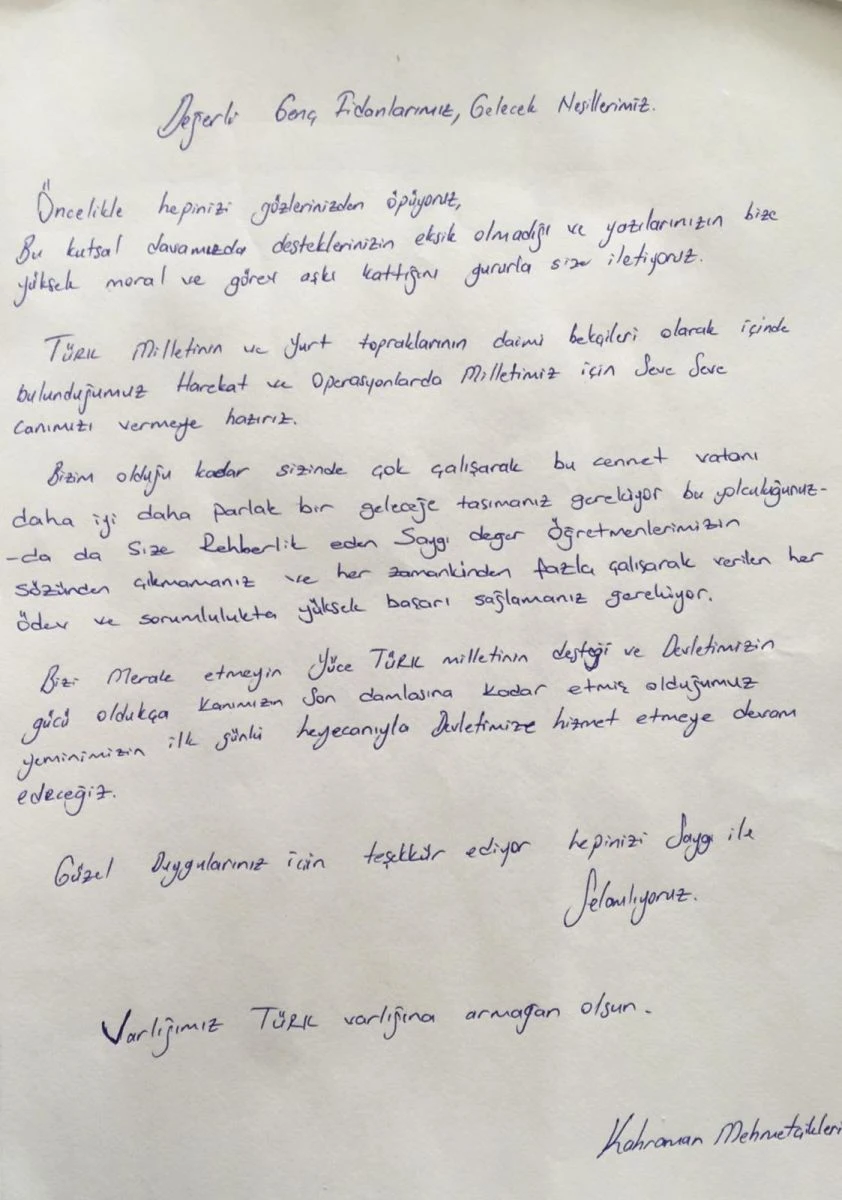 Değerli Genç Fidanlarımız, Gelecek Nesillerimiz.
Öncelikle hepinizi gözlerinizden öpüyoruz,
Bu kutsal davamızda desteklerinizin eksik olmadığı ve yazılarınızın bize
yüksek moral ve görev aşkı kattığını gururla size iletiyoruz.
TÜRK Milletinin ve Yurt topraklarının daimi bekçileri olarak içinde
bulunduğumuz Harekat ve Operasyonlarda Milletimiz için Seve Seve
canımızı vermeye hazırız.
Bizim olduğu kadar sizinde çok çalışarak bu cennet vatanı
daha iyi daha parlak bir geleceğe tasımanız gerekiyor bu yolculuğunuz-
-da da Size Rehberlik eden Saygı değer Öğretmenlerimizin
sözünden çıkmamanız ve her zamankinden fazla çalışarak verilen her
ödev ve sorumlulukta yüksek basarı sağlamanız gerekiyor.
Bizi Merak etmeyin Yüce TÜRK milletinin desteği ve Devletimizin
gücü oldukça kanımızın Son damlasına kadar etmiş olduğumuz
yeminimizin ilk günkü heyecanıyla Devletimize hizmet etmeye devam
edeceğiz.
Güzel Duygularınız için teşekkür ediyor hepinizi Saygı ile
Selamlıyoruz.
Varlığımız TÜRK varlığına armağan olsun.
Kahraman Mehmetçikleri